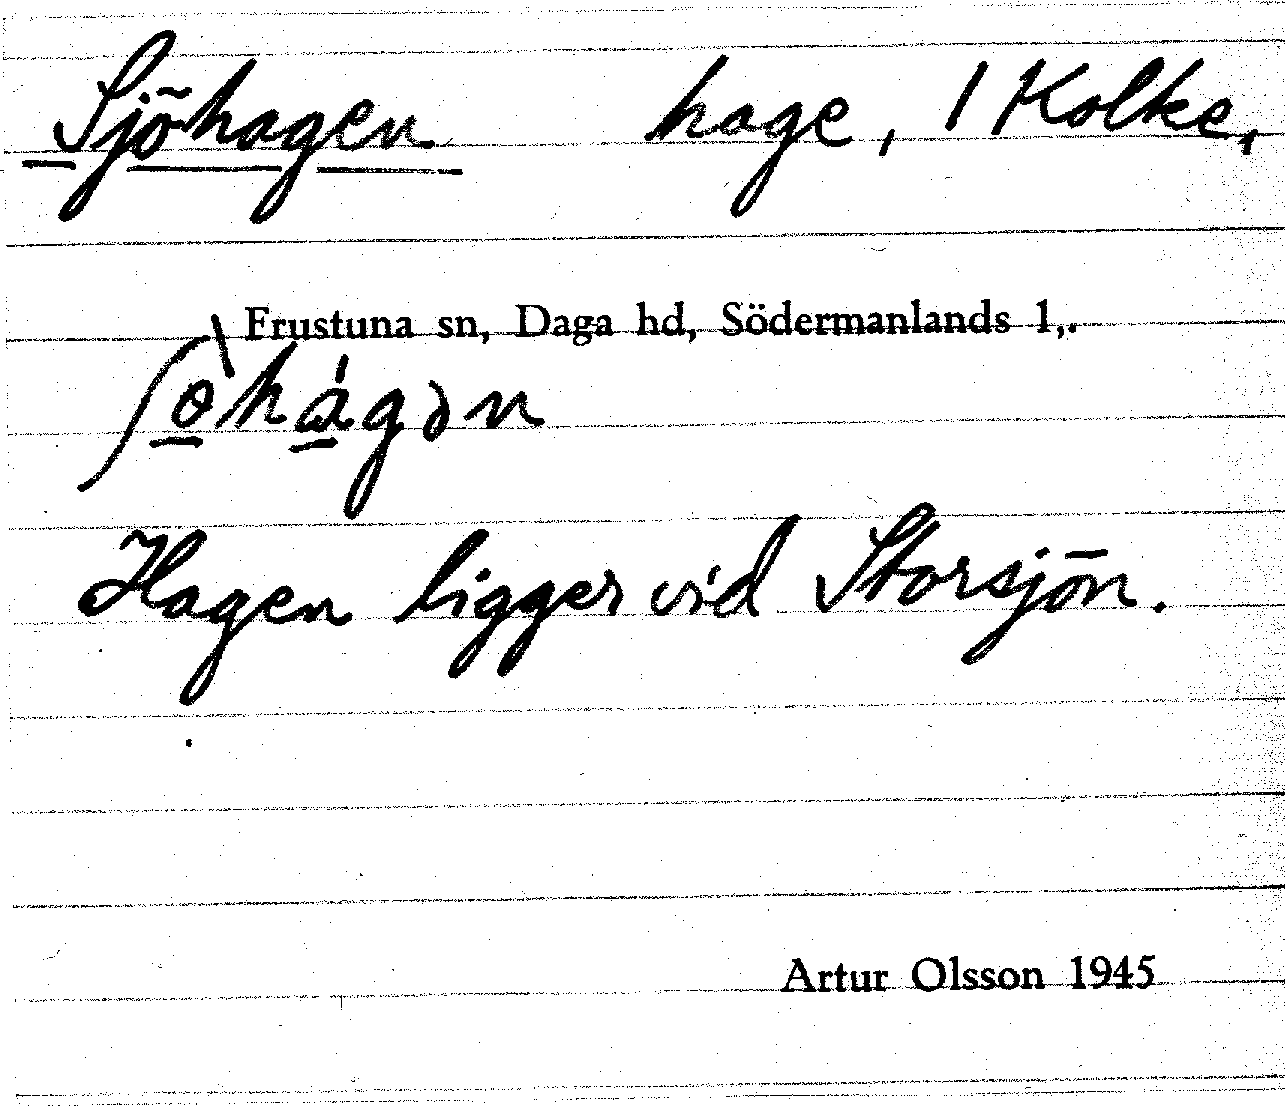 Sjöhagen hage, 1 Kolke,
Frustuna sn, Daga hd, Södermanlands l,.
ʃø̱̀há̱gən
Hagen ligger vid Storsjön.
Artur Olsson 1945